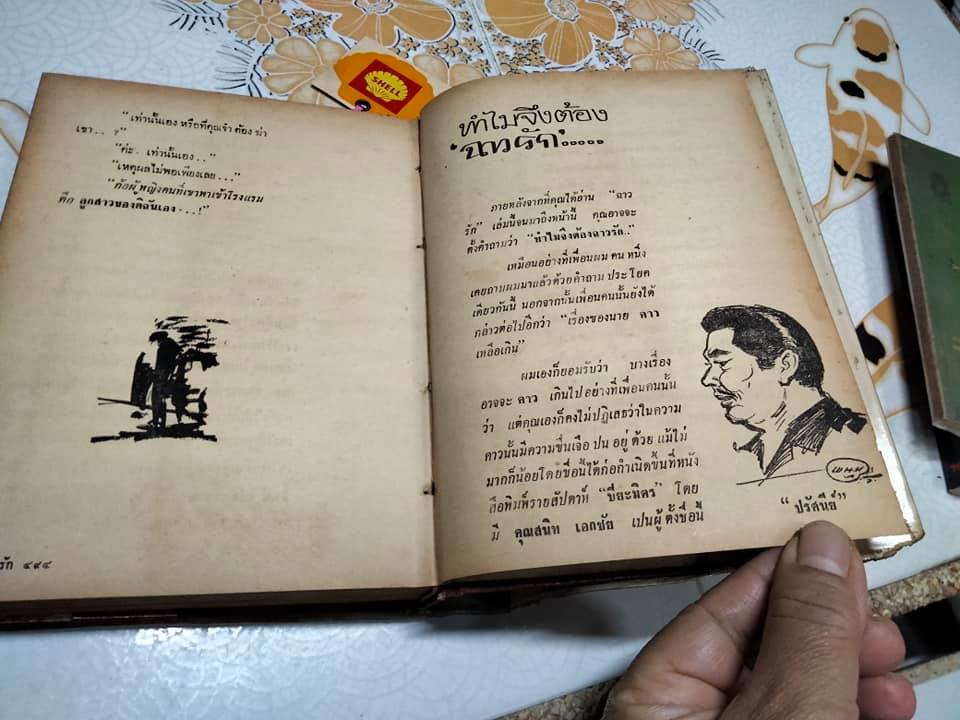 "เท่านั้นเอง หรือที่คุณจำ ต้อง ฆ่า
เขา . . ?"
"ค่ะ. เท่านั้นเอง . ."
"เหตุผลไม่พอเพียงเลย . . ."
"ก้อผู้หญิงคนที่เขาพาเข้าโรงแรม
คือ ลูกสาวของดิฉันเอง - . . !"
รัก ๔๙๔
SHELL
ทำไมจึงต้อง
'ฉาวรัก'.....
ภายหลังจากที่คุณได้อ่าน "ฉาว
รัก" เล่มนี้จนมาถึงหน้านี้ คุณอาจจะ
ตั้งคำถามว่า "ทำไมจึงต้องฉาวรัก.."
เหมือนอย่างที่เพื่อนผม คน หนึ่ง
เคยถามผมมาแล้วด้วยคำถาม ประโยค
เดียวกันนี้ นอกจากนั้นเพื่อนคนนั้นยังได้
กล่าวต่อไปอีกว่า "เรื่องของนาย คาว
เหลือเกิน"
ผมเองก็ยอมรับว่า บางเรื่อง
อาจจะ คาว เกินไป อย่างที่เพื่อนคนนั้น
ว่า แต่คุณเองก็คงไม่ปฏิเสธว่าในความ
คาวนั้นมีความขื่นเจือ ปน อยู่ ด้วย แม้ไม่
มากก็น้อยโดยชื่อนี้ได้ก่อกำเนิดขึ้นที่หนัง
สือพิมพ์รายสัปดาห์ "ปิยะมิตร" โดย
มี คุณสนิท เอกชัย เป็นผู้ตั้งชื่อนี้
"ปรัศนีย์"